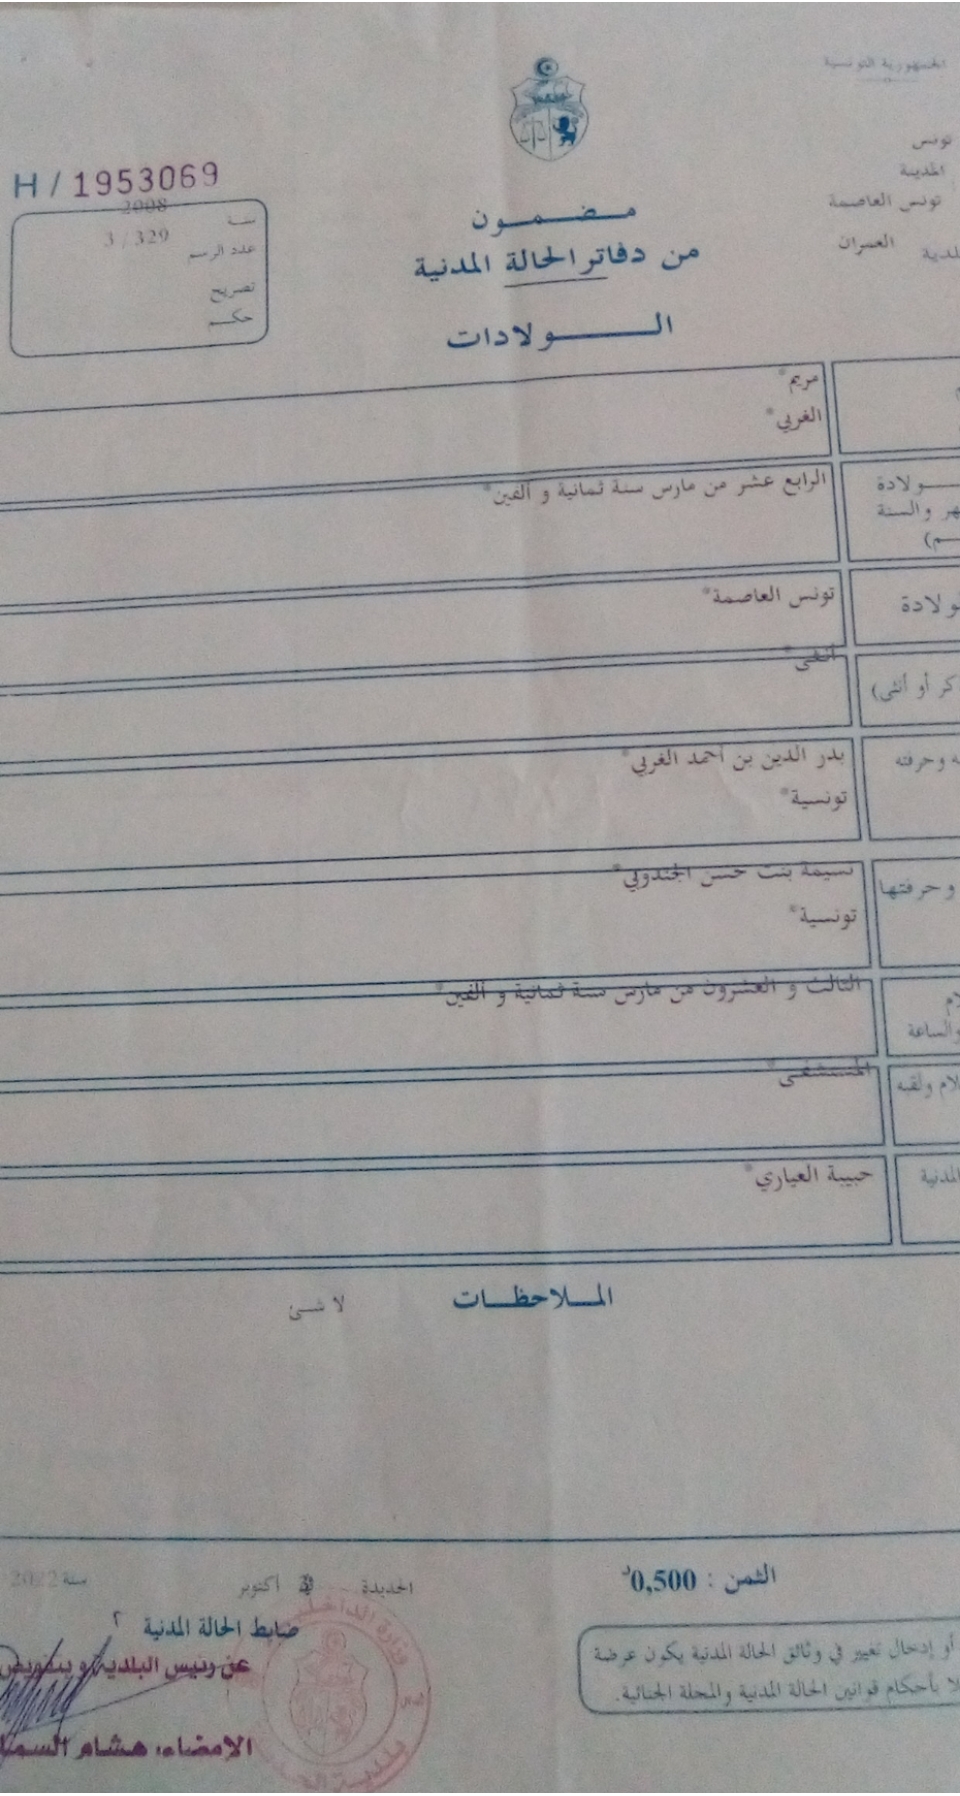 الجمهورية التونسية
تونس
المدينة
تونس العاصمة
العمران
H / 1953069
سنة 2008
عدد الرسم 3 / 329
تصريح
حكم
مضمون
من دفاتر الحالة المدنية
الولادات
مريم*
الغربي*
ولادة
والسنة
الرابع عشر من مارس سنة ثمانية و ألفين*
تونس العاصمة*
أو أنثى)
أنثى*
وحرفته
بدر الدين بن أحمد الغربي*
تونسية*
وحرفتها
نسيمة بنت حسن الجندوبي*
تونسية*
والساعة
الثالث و العشرون من مارس سنة ثمانية و ألفين*
ولقبه
المستشفى*
المدنية
حبيبة العياري*
الملاحظات
لا شئ
الثمن : 0,500د
أكتوبر
سنة 2022
ضابط الحالة المدنية
عن رئيس البلدية و بتفويض
الامضاء: هشام
وزارة الداخلية
بلدية
أو إدخال تغيير في وثائق الحالة المدنية يكون عرضة
بأحكام قوانين الحالة المدنية والمجلة الجنائية.